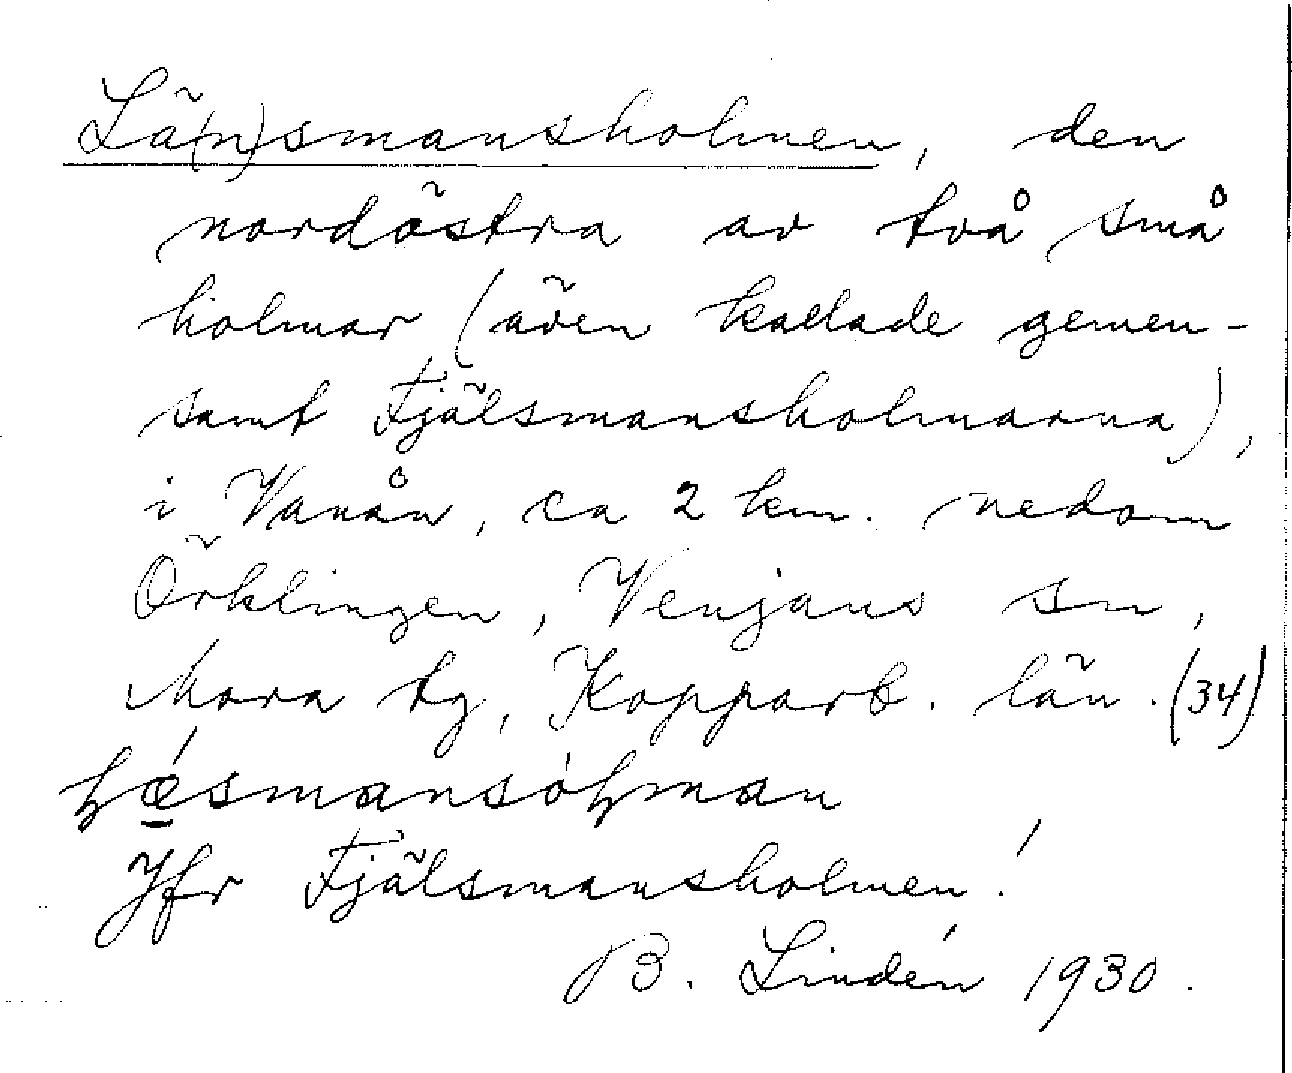 Lä(n)smansholmen, den
nordöstra av två små
holmar (även kallade gemen-
samt Fjälsmansholmarna),
i Vanån, ca 2 km. nedom
Örklingen, Venjans sn,
Mora tg, Kopparb. län. (34)
Jfr Fjälsmansholmen!
B. Lindén 1930.